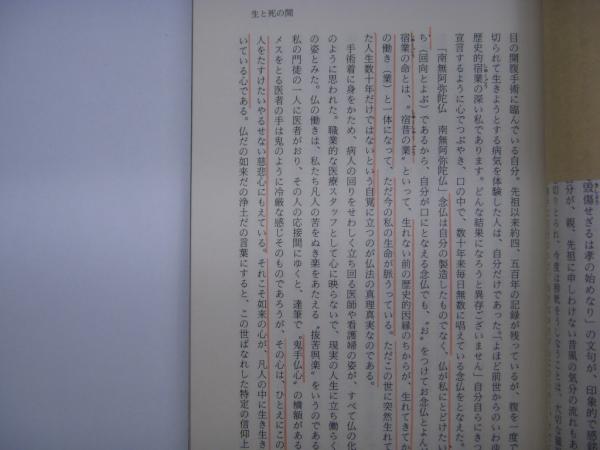 生と死の間
目の開腹手術に臨んでいる自分。先祖以来約四、五百年の記録が残っているが、腹を一度で
切られて生きようとする病気を体験した人は、自分だけであった『よほど前世からのいわ
歴史的宿業の深い私であります。どんな結果になろうと異存ございません』自分自らにきつ
宣言するように心でつぶやき、口の中で、数十年来毎日無数に唱えている念仏をとなえた。
「南無阿弥陀仏　南無阿弥陀仏」念仏は自分の製造したものでなく、仏が私にとどけたい
ち（回向とよぶ）であるから、自分が口にとなえる念仏でも、〝お〟をつけてお念仏とよん
宿業の命とは、〝宿昔の業〟といって、生れない前の歴史的因縁のちからが、生れてきてか
の働き（業）と一体になって、ただ今の私の生命が脈うっている。ただこの世に突然生れて
た人生数十年だけではないという自覚に立つのが仏法の真理真実なのである。
手術着に身をかため、病人の回りをせわしく立ち回る医師や看護婦の姿が、すべて仏の化
のように思われた。職業的な医療スタッフとして心に映らないで、現実の人生に立ち働らく
の姿とみた。仏の働きは、私たち凡人の苦をぬき楽をあたえる〝抜苦與楽〟をいうのである
私の門徒の一人に医者がおり、その人の応接間にゆくと、達筆で〝鬼手仏心〟の横額がある
メスをとる医者の手は鬼のように冷厳な感じそのものであろうが、その心は、ひとえにこの
人をたすけたいやるせない慈悲心にもえている。それこそ如来の心が、凡人の中に生き生き
いている心である。仏だの如来だの浄土だの言葉にすると、この世ばなれした特定の信仰上
毀傷せざるは孝の始めなり」の文句が、印象的で感銘
自分が、親、先祖に申しわけない昔風の気分の流れもあ